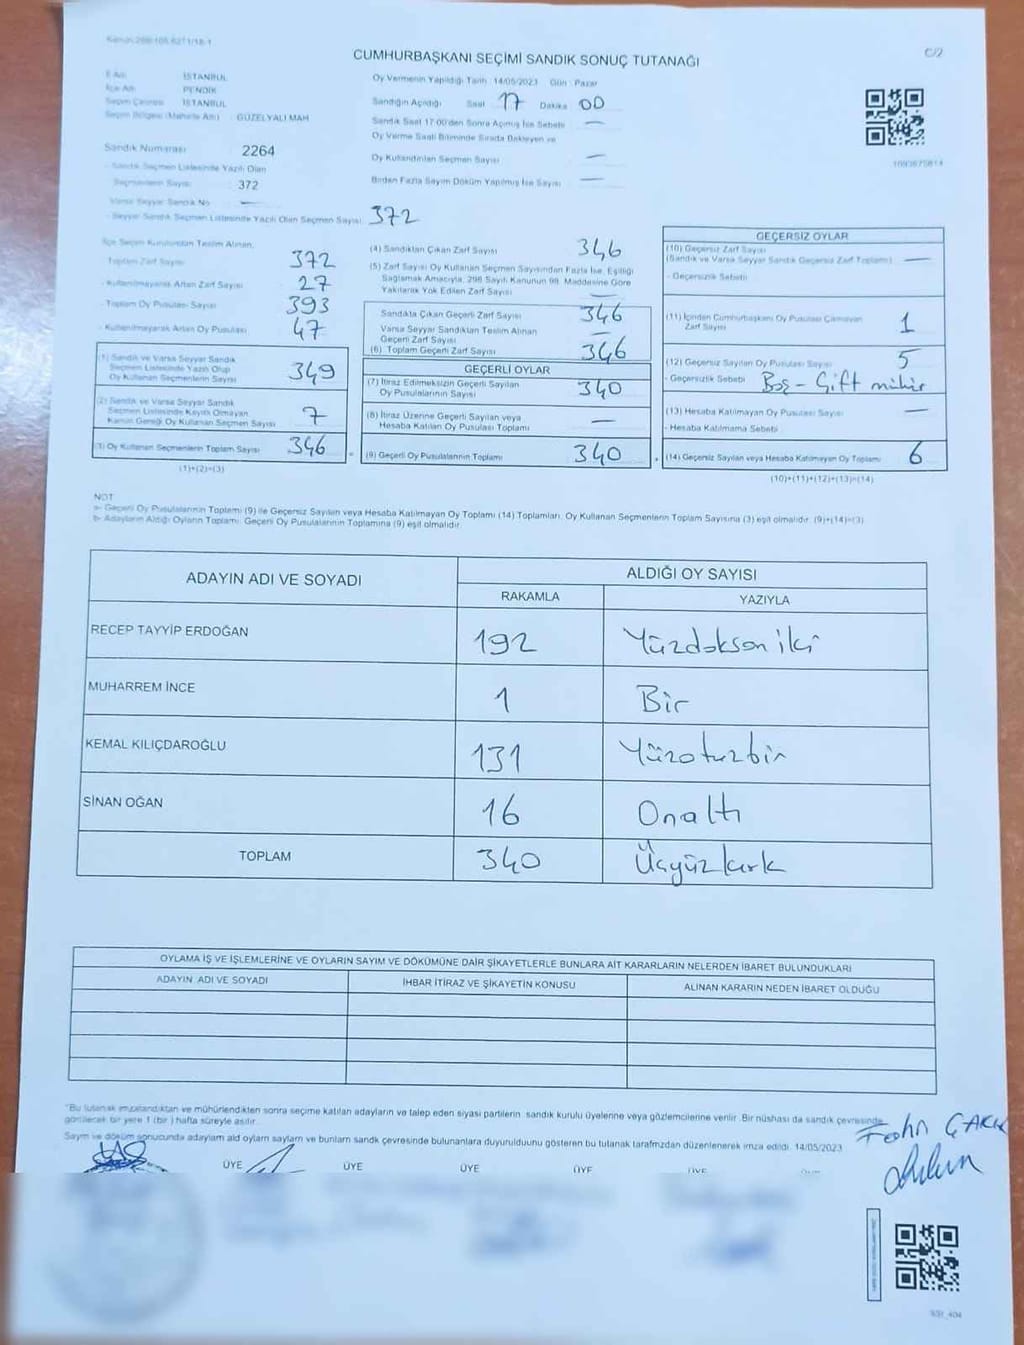 C/2
CUMHURBAŞKANI SEÇİMİ SANDIK SONUÇ TUTANAĞI
İl Adı : İSTANBUL
İlçe Adı : PENDİK
Seçim Çevresi : İSTANBUL
Seçim Bölgesi (Mahalle Adı) : GÜZELYALI MAH
Sandık Numarası : 2264
- Sandık Seçmen Listesinde Yazılı Olan
Seçmenlerin Sayısı : 372
Varsa Seyyar Sandık No : —
- Seyyar Sandık Seçmen Listesinde Yazılı Olan Seçmen Sayısı : 372
Oy Vermenin Yapıldığı Tarih : 14/05/2023 Gün : Pazar
Sandığın Açıldığı Saat 17 Dakika 00
Sandık Saat 17:00'den Sonra Açılmış İse Sebebi —
Oy Verme Saati Bitiminde Sırada Bekleyen ve
Oy Kullandırılan Seçmen Sayısı —
Birden Fazla Sayım Döküm Yapılmış İse Sayısı —
İlçe Seçim Kurulundan Teslim Alınan;
Toplam Zarf Sayısı 372
- Kullanılmayarak Artan Zarf Sayısı 27
- Toplam Oy Pusulası Sayısı 393
- Kullanılmayarak Artan Oy Pusulası 47
(1) Sandık ve Varsa Seyyar Sandık
Seçmen Listesinde Yazılı Olup
Oy Kullanan Seçmenlerin Sayısı 349
(2) Sandık ve Varsa Seyyar Sandık
Seçmen Listesine Kayıtlı Olmayan
Kanun Gereği Oy Kullanan Seçmen Sayısı 7
(3) Oy Kullanan Seçmenlerin Toplam Sayısı 346
(1)+(2)=(3)
(4) Sandıktan Çıkan Zarf Sayısı 346
(5) Zarf Sayısı Oy Kullanan Seçmen Sayısından Fazla İse, Eşitliği
Sağlamak Amacıyla, 298 Sayılı Kanunun 98. Maddesine Göre
Yakılarak Yok Edilen Zarf Sayısı —
Sandıkta Çıkan Geçerli Zarf Sayısı 346
Varsa Seyyar Sandıktan Teslim Alınan
Geçerli Zarf Sayısı —
(6) Toplam Geçerli Zarf Sayısı 346
GEÇERLİ OYLAR
(7) İtiraz Edilmeksizin Geçerli Sayılan
Oy Pusulalarının Sayısı 340
(8) İtiraz Üzerine Geçerli Sayılan veya
Hesaba Katılan Oy Pusulası Toplamı —
(9) Geçerli Oy Pusulalarının Toplamı 340
GEÇERSİZ OYLAR
(10) Geçersiz Zarf Sayısı
(Sandık ve Varsa Seyyar Sandık Geçersiz Zarf Toplamı) —
- Geçersizlik Sebebi
(11) İçinden Cumhurbaşkanı Oy Pusulası Çıkmayan
Zarf Sayısı 1
(12) Geçersiz Sayılan Oy Pusulası Sayısı 5
- Geçersizlik Sebebi Boş - Çift mühür
(13) Hesaba Katılmayan Oy Pusulası Sayısı —
- Hesaba Katılmama Sebebi
(14) Geçersiz Sayılan veya Hesaba Katılmayan Oy Toplamı 6
(10)+(11)+(12)+(13)=(14)
NOT
a- Geçerli Oy Pusulalarının Toplamı (9) ile Geçersiz Sayılan veya Hesaba Katılmayan Oy Toplamı (14) Toplamları, Oy Kullanan Seçmenlerin Toplam Sayısına (3) eşit olmalıdır. (9)+(14)=(3)
b- Adayların Aldığı Oyların Toplamı, Geçerli Oy Pusulalarının Toplamına (9) eşit olmalıdır.
ADAYIN ADI VE SOYADI ALDIĞI OY SAYISI
RAKAMLA YAZIYLA
RECEP TAYYİP ERDOĞAN 192 Yüzdoksan iki
MUHARREM İNCE 1 Bir
KEMAL KILIÇDAROĞLU 131 Yüzotuzbir
SİNAN OĞAN 16 Onaltı
TOPLAM 340 Üçyüzkırk
OYLAMA İŞ VE İŞLEMLERİNE VE OYLARIN SAYIM VE DÖKÜMÜNE DAİR ŞİKAYETLERLE BUNLARA AİT KARARLARIN NELERDEN İBARET BULUNDUKLARI
ADAYIN ADI VE SOYADI İHBAR İTİRAZ VE ŞİKAYETİN KONUSU ALINAN KARARIN NEDEN İBARET OLDUĞU
"Bu tutanak imzalandıktan ve mühürlendikten sonra seçime katılan adayların ve talep eden siyasi partilerin sandık kurulu üyelerine veya gözlemcilerine verilir. Bir nüshası da sandık çevresinde
görülecek bir yere 1 (bir) hafta süreyle asılır.
Sayım ve döküm sonucunda adayların aldı oyların sayıların ve bunların sandık çevresinde bulunanlara duyurulduunu gösteren bu tutanak tarafmzdan düzenlenerek imza edildi. 14/05/2023
ÜYE ÜYE ÜYE ÜYE ÜYE